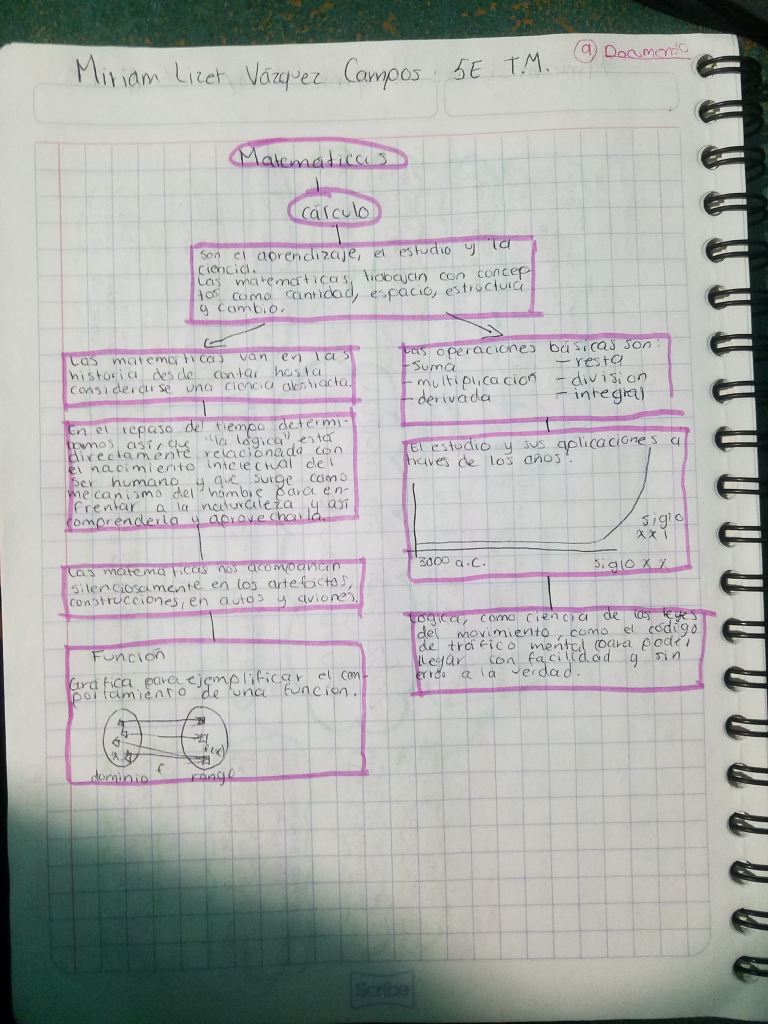 9 Documento
Miriam Lizet Vázquez Campos 5E T.M.
Matemáticas
cálculo
son el aprendizaje, el estudio y la
ciencia.
Las matemáticas, trabajan con concep-
tos como cantidad, espacio, estructura
y cambio.
Las matemáticas van en las
historia desde contar hasta
considerarse una ciencia abstracta.
En el repaso del tiempo determi-
namos así, que "la lógica" está
directamente relacionada con
el nacimiento intelectual del
ser humano y que surge como
mecanismo del hombre para en-
frentar a la naturaleza y así
comprenderla y aprovecharla.
Las matemáticas nos acompañan
silenciosamente en los artefactos,
construcciones, en autos y aviones.
Función
Gráfica para ejemplificar el com-
portamiento de una función.
x
f(x)
dominio f rango
Las operaciones básicas son:
-suma - resta
-multiplicación - división
-derivada - integral
El estudio y sus aplicaciones a
traves de los años.
siglo
xxi
3000 a.C. siglo xx
Lógica, como ciencia de las leyes
del movimiento, como el código
de tráfico mental para poder
llegar con facilidad y sin
a la verdad.
Scribe